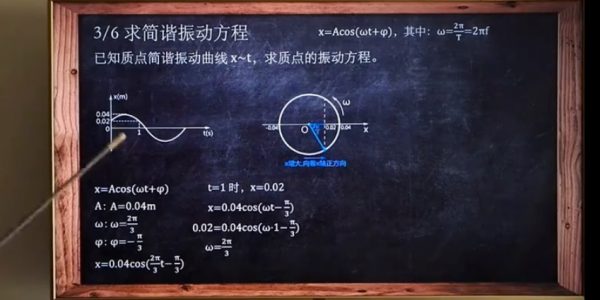 3/6 求简谐振动方程
x=Acos(ωt+φ)，其中：ω=2π/T=2πf
已知质点简谐振动曲线 x~t，求质点的振动方程。
x(m)
0.04
0.02
0
1
t(s)
ω
-0.04
O
0.02
0.04
x
x增大,向着x轴正方向
x=Acos(ωt+φ)
A: A=0.04m
ω: ω=2π/3
φ: φ=-π/3
x=0.04cos(2π/3t-π/3)
t=1 时，x=0.02
x=0.04cos(ωt-π/3)
0.02=0.04cos(ω·1-π/3)
ω=2π/3